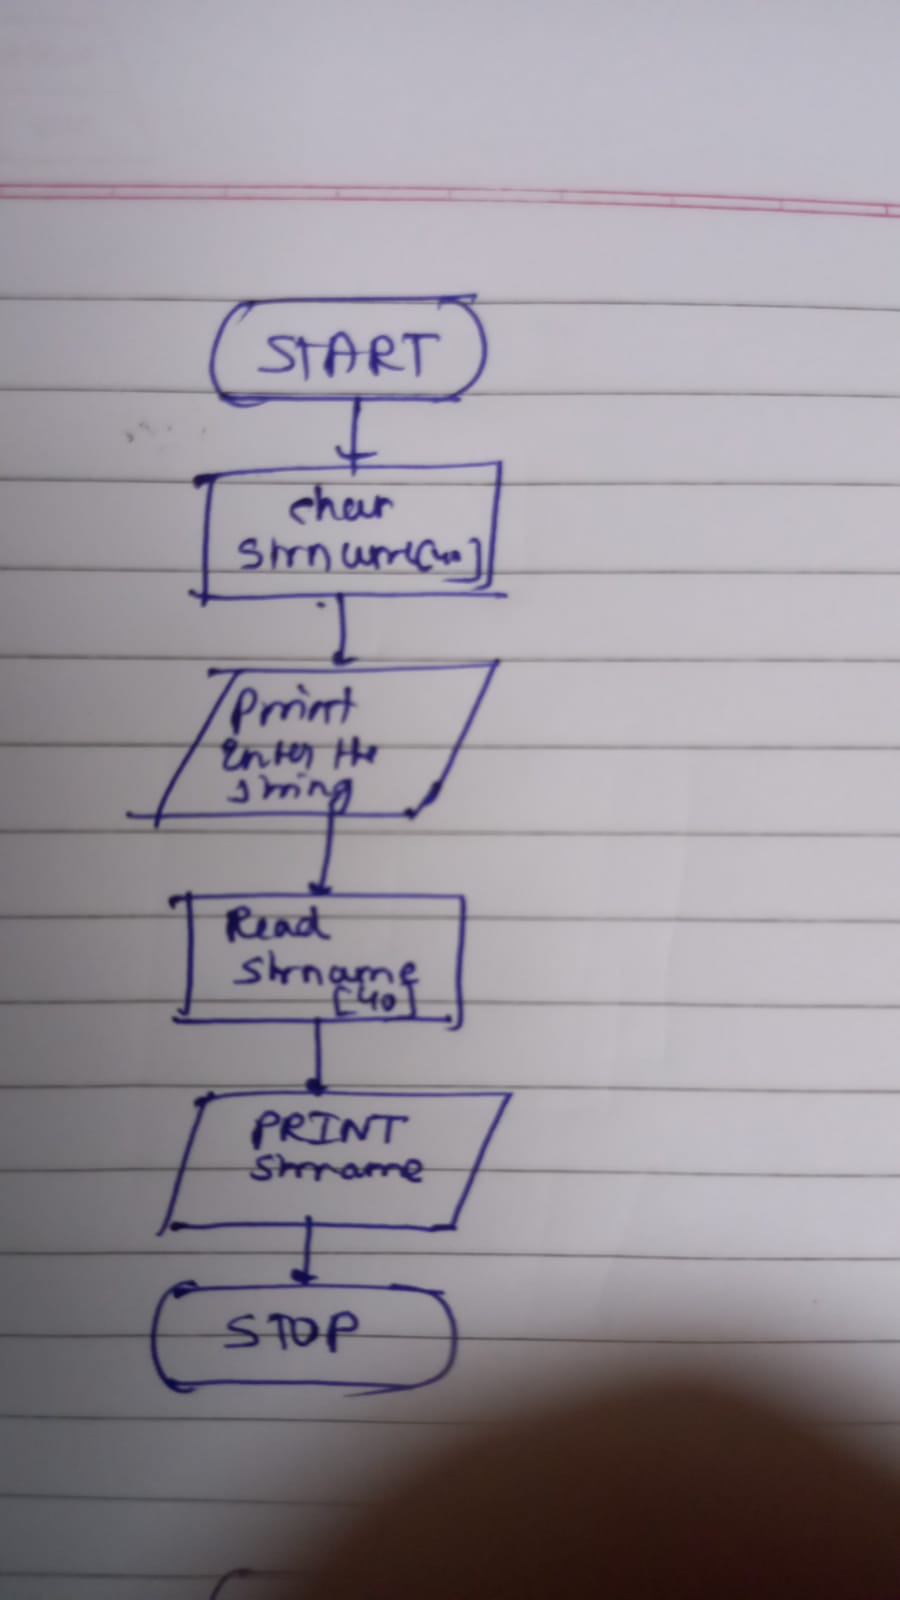 START
char
Strname[40]
Print
Enter the
string
Read
Strname
[40]
PRINT
Strname
STOP